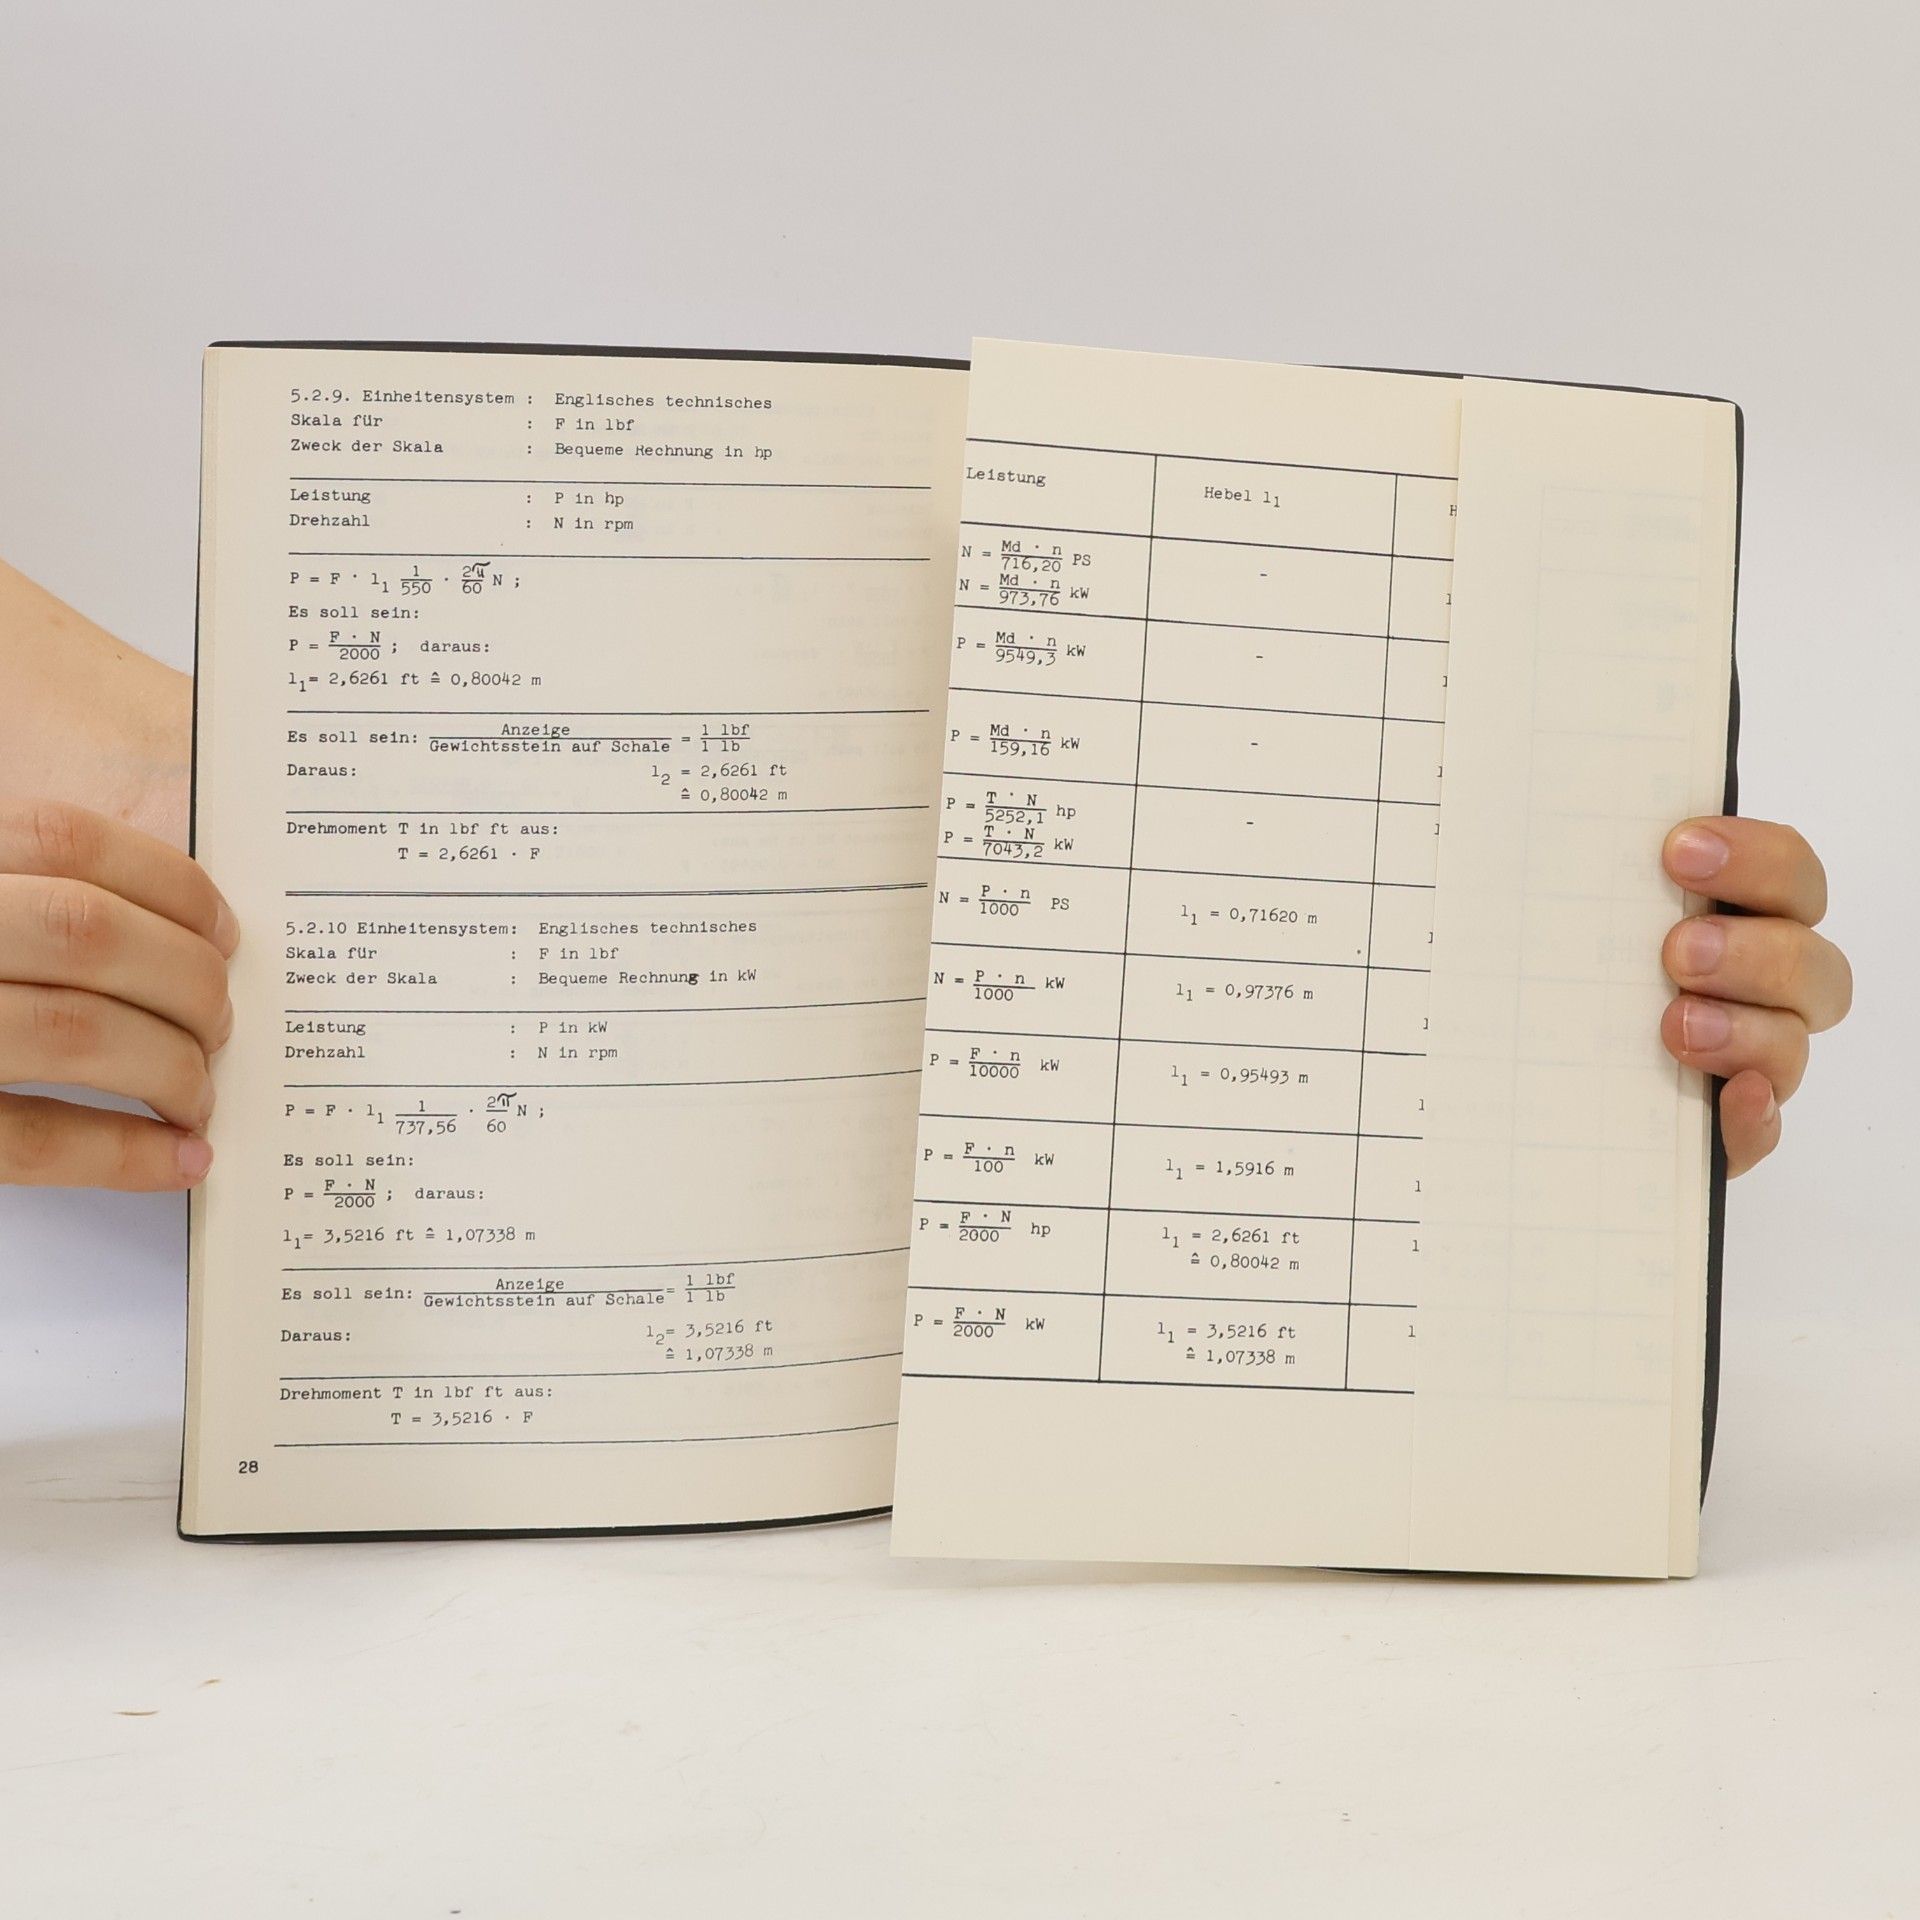 5.2.9. Einheitensystem : Englisches technisches
Skala für : F in lbf
Zweck der Skala : Bequeme Rechnung in hp
Leistung : P in hp
Drehzahl : N in rpm
P = F · l1 1/550 · 2π/60 N ;
Es soll sein:
P = F · N/2000 ; daraus:
l1= 2,6261 ft ≙ 0,80042 m
Es soll sein: Anzeige/Gewichtsstein auf Schale = 1 lbf/1 lb
Daraus: l2 = 2,6261 ft
≙ 0,80042 m
Drehmoment T in lbf ft aus:
T = 2,6261 · F
5.2.10 Einheitensystem: Englisches technisches
Skala für : F in lbf
Zweck der Skala : Bequeme Rechnung in kW
Leistung : P in kW
Drehzahl : N in rpm
P = F · l1 1/737,56 · 2π/60 N ;
Es soll sein:
P = F · N/2000 ; daraus:
l1= 3,5216 ft ≙ 1,07338 m
Es soll sein: Anzeige/Gewichtsstein auf Schale = 1 lbf/1 lb
Daraus: l2= 3,5216 ft
≙ 1,07338 m
Drehmoment T in lbf ft aus:
T = 3,5216 · F
28
Leistung Hebel l1 H
N = Md · n/716,20 PS -
N = Md · n/973,76 kW l
P = Md · n/9549,3 kW - l
P = Md · n/159,16 kW - l
P = T · N/5252,1 hp - l
P = T · N/7043,2 kW
N = P · n/1000 PS l1 = 0,71620 m l
N = P · n/1000 kW l1 = 0,97376 m l
P = F · n/10000 kW l1 = 0,95493 m l
P = F · n/100 kW l1 = 1,5916 m l
P = F · N/2000 hp l1 = 2,6261 ft l
≙ 0,80042 m
P = F · N/2000 kW l1 = 3,5216 ft l
≙ 1,07338 m